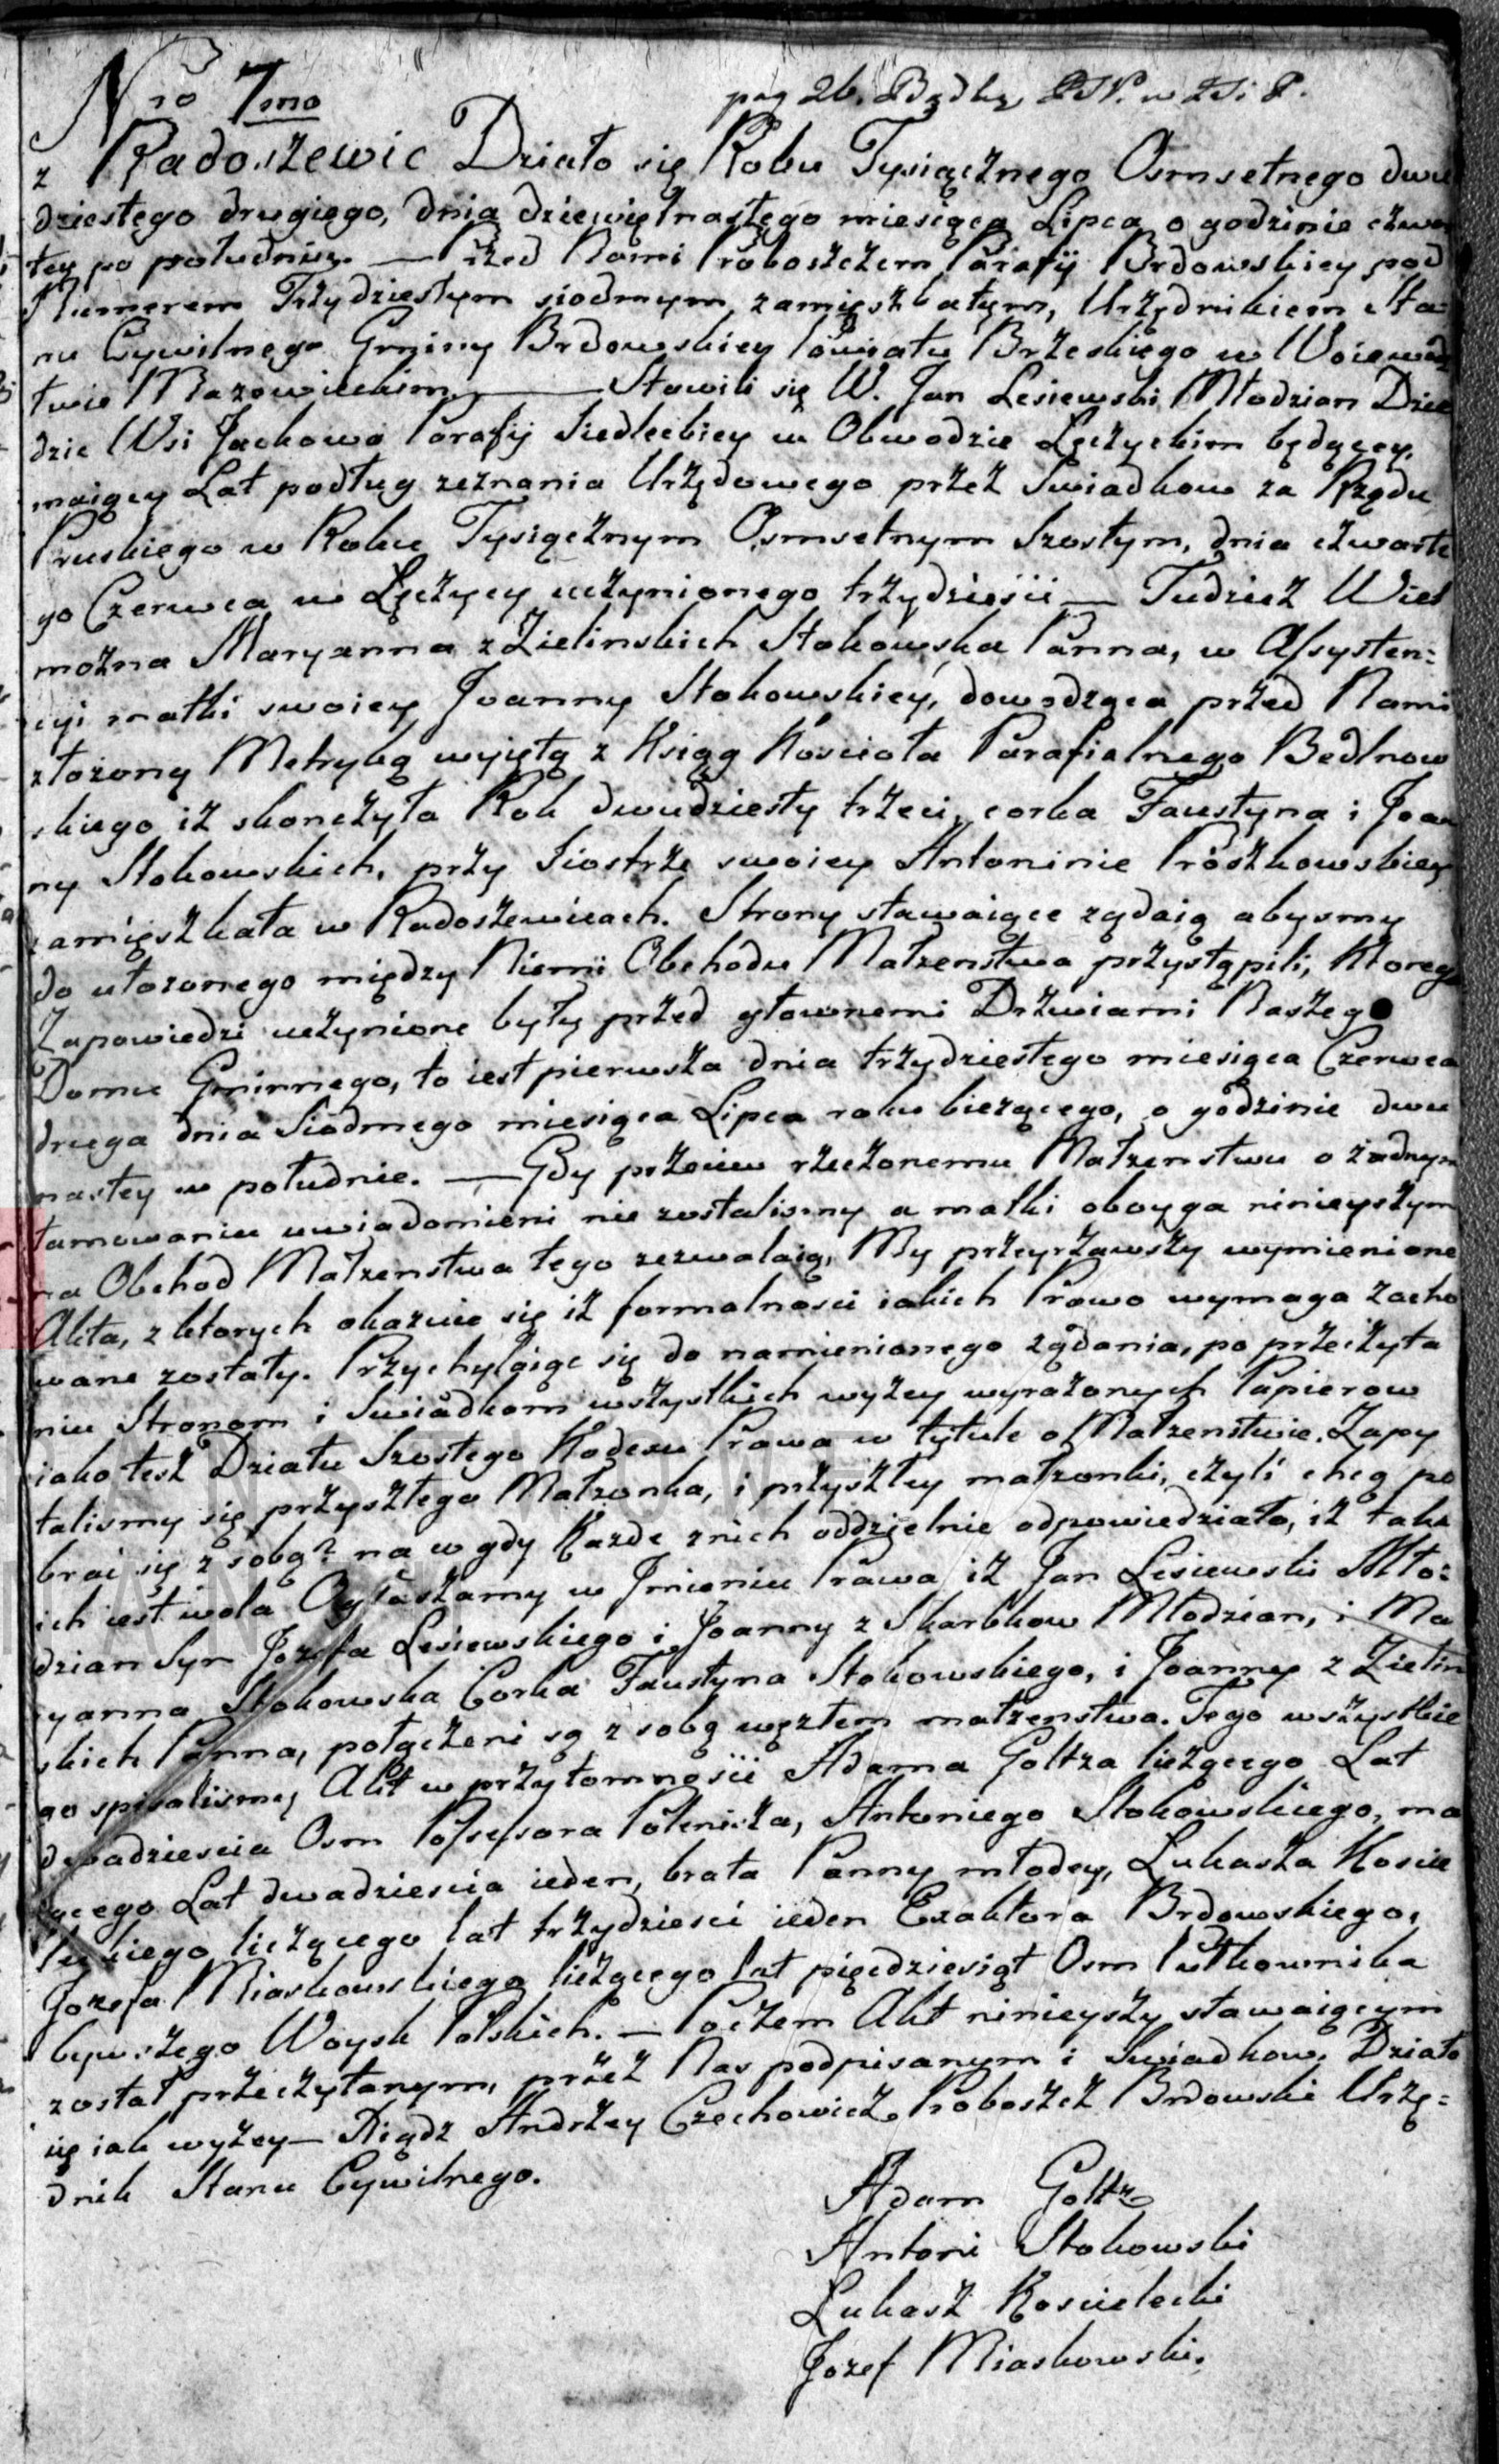 Nro 7mo
pag 26.
z Radoszewic Działo się Roku Tysiącżnego Osmsetnego dwu
dziestego drugiego, dnia dziewiętnastego miesiąca Lipca o godzinie cżwar
tey po południu. — Przed Nami Proboszcżem Parafij Brdowskiey pod
Numerem Trzydziestym siodmym zamięszkałym, Urzędnikiem Sta=
nu Cywilnego Gminy Brdowskiey Powiatu Brżeskiego w Woiewodz
twie Mazowieckim. — Stawili się W. Jan Lesiewski Młodzian Dzie
dzic Wsi Jackowa Parafij Siedleckiey w Obwodzie Łęcżyckim będącey,
maiący Lat podług zeznania Urzędowego przeż Swiadkow za Rządu
Pruskiego w Roku Tysiącżnym Osmsetnym Szostym, dnia cżwarte
go Czerwca w Łęcżycy ucżynionego trżydziesci — Tudzież Wiel
można Maryanna z Zielinskich Stokowska Panna, w Assysten=
cyi matki swoiey Joanny Stokowskiey, dowodząca przed Nami
złożoną Metryką wyjętą z Ksiąg Kosciola Parafialnego Bedlnow
skiego iż skoncżyła Rok dwudziesty trżeci, corka Faustyna i Joan
ny Stokowskich, przy Siostrże swoiey Antoninie Prószkowskiey
zamięszkała w Radoszewicach. Strony stawaiące żądaią abysmy
do ułożonego między Niemi Obchodu Małżenstwa przystąpili, Ktorego
Zapowiedzi ucżynione były przed głownemi Drżwiami Naszego
Domu Gminnego, to iest pierwsza dnia trżydziestego miesiąca Czerwca
druga dnia Siodmego miesiąca Lipca roku bieżącego, o godzinie dwu
nastey w południe. — Gdy przeciw rżecżonemu Małżenstwu o żadnym
tamowaniu uwiadomieni nie zostalismy a matki oboyga ninieyszym
na Obchod Małżenstwa tego zezwalaią, My przeyrżawszy wymienione
Akta, z ktorych okazuie się iż formalnosci iakich Prawo wymaga zacho
wane zostały. Przychylaiąc się do namienionego żądania, po przecżyta
niu Stronom i Swiadkom wszystkich wyżey wyrażonych Papierow
iako też Działu Szostego Kodexu Prawa w tytule o Małżenstwie. Zapy
talismy się przyszłego Małżonka, i przyszłey małżonki, cżyli chcą po
brac się z sobą? na w gdy Każde z nich oddzielnie odpowiedziało, iż taka
ich iest wola Ogłaszamy w Jmieniu Prawa iż Jan Lesiewski Mło=
dzian Syn Jozefa Lesiewskiego i Joanny z Skarbkow Młodzian, i Ma
ryanna Stokowska Corka Faustyna Stokowskiego, i Joanny z Zielin
skich Panna, połącżeni są z sobą węzłem małżenstwa. Tego wszystkie
go spisalismy Akt w przytomnosci Adama Goltza licżącego Lat
dwadziescia Osm Possessora Polenisza, Antoniego Stokowskiego, ma
iącego Lat dwadziescia ieden, brata Panny młodey, Łukasża Koscie
leckiego licżącego lat trżydziesci ieden Exaktora Brdowskiego,
Jozefa Miaskowskiego licżącego lat pięcdziesiąt Osm Pułkownika
bywszego Woysk Polskich. — Pocżem Akt ninieyszy stawaiącym
został przecżytanym, przeż Nas podpisanym i Swiadkow. Działo
się iak wyżey — Xiądz Andrżey Czechowicż Proboszcż Brdowski Urzę=
dnik Stanu Cywilnego.
Adam Goltz
Antoni Stokowski
Łukasż Koscielecki
Jozef Miaskowski.